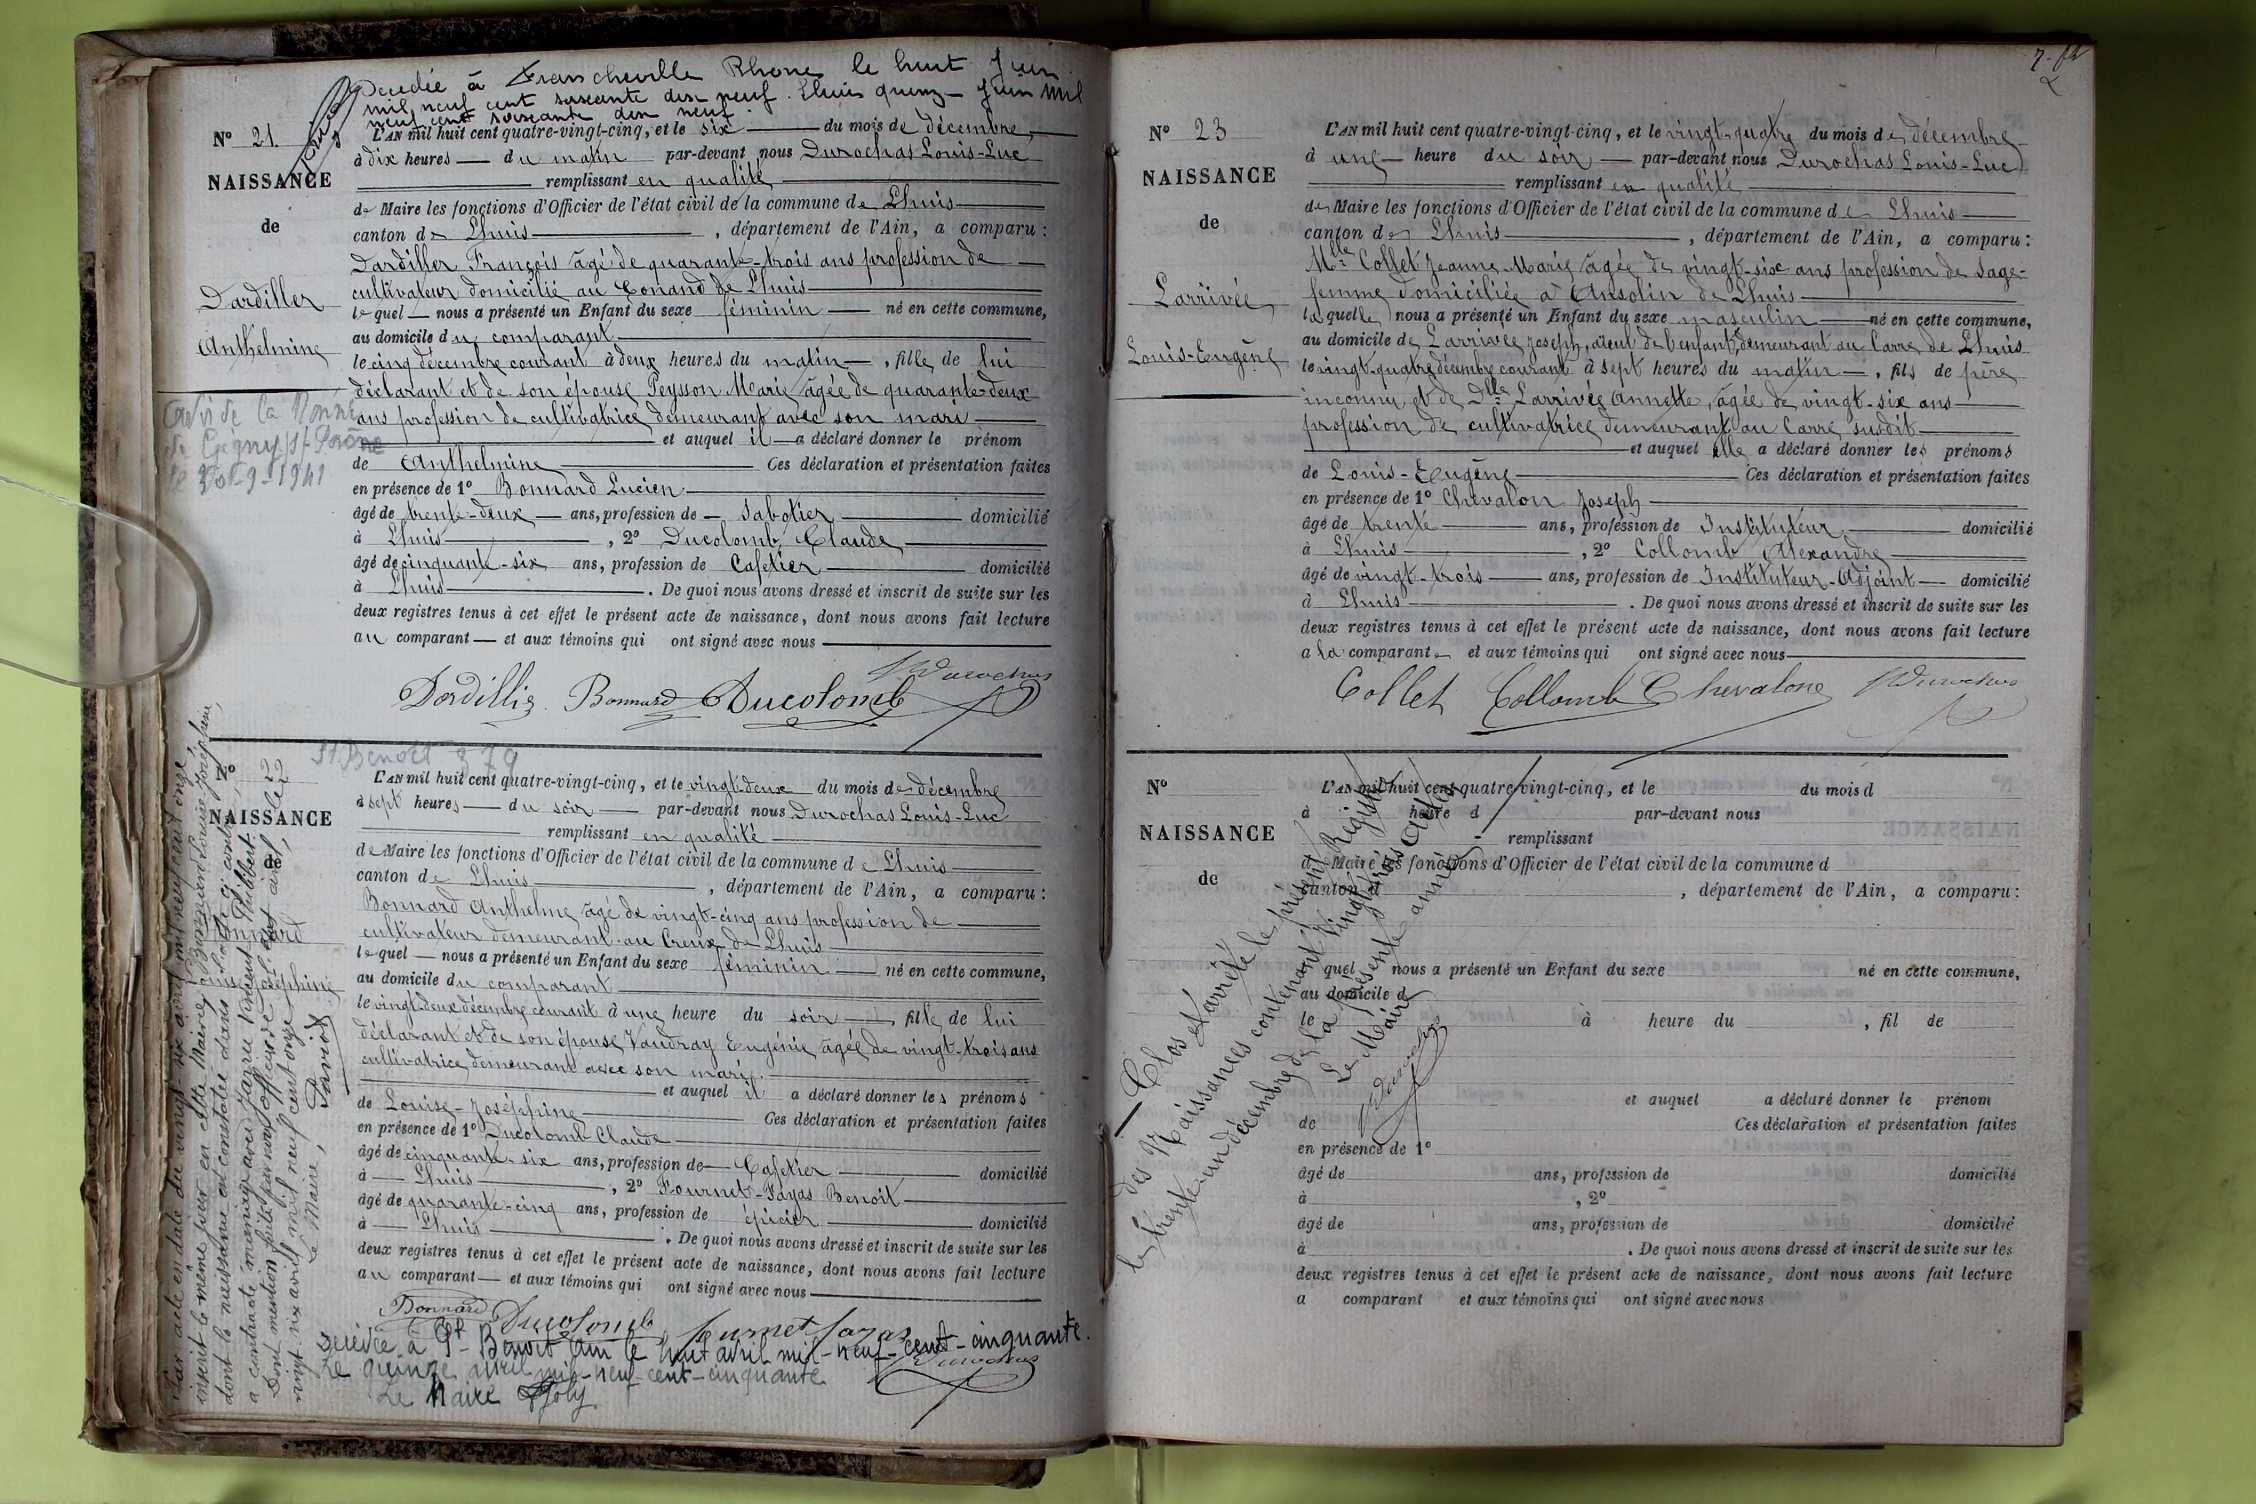 Decedée à Francheville Rhone le huit Juin
mil neuf cent soixante dix neuf. Lhuis quinze Juin mil
neuf cent soixante dix neuf.
N° 21.
NAISSANCE
de
Dardiller
Anthelmine
L'AN mil huit cent quatre-vingt-cinq, et le six du mois de décembre,
à dix heures du matin par-devant nous Durochas Louis-Luc
remplissant en qualité
de Maire les fonctions d'Officier de l'état civil de la commune de Lhuis
canton de Lhuis, département de l'Ain, a comparu :
Dardiller François âgé de quarante-trois ans profession de
cultivateur domicilié au Conand de Lhuis
lequel nous a présenté un Enfant du sexe féminin né en cette commune,
au domicile du comparant
le cinq décembre courant à deux heures du matin, fille de lui
déclarant et de son épouse Peysson Marie âgée de quarante-deux
ans profession de cultivatrice demeurant avec son mari
et auquel il a déclaré donner le prénom
de Anthelmine Ces déclaration et présentation faites
en présence de 1° Bonnard Lucien
âgé de trente-deux ans, profession de Sabotier domicilié
à Lhuis, 2° Ducolomb Claude
âgé de cinquante-six ans, profession de Cafetier domicilié
à Lhuis. De quoi nous avons dressé et inscrit de suite sur les
deux registres tenus à cet effet le présent acte de naissance, dont nous avons fait lecture
au comparant et aux témoins qui ont signé avec nous
Dardillie Bonnard Ducolomb Durochas
de la
le 1941
St Benoit
N° 22
NAISSANCE
de
Bonnard
Louise Joséphine
L'AN mil huit cent quatre-vingt-cinq, et le vingt-deux du mois de décembre
à sept heures du soir par-devant nous Durochas Louis-Luc
remplissant en qualité
de Maire les fonctions d'Officier de l'état civil de la commune de Lhuis
canton de Lhuis, département de l'Ain, a comparu :
Bonnard Anthelme âgé de vingt-cinq ans profession de
cultivateur demeurant au Creux de Lhuis
lequel nous a présenté un Enfant du sexe féminin né en cette commune,
au domicile du comparant
le vingt-deux décembre courant à une heure du soir, fille de lui
déclarant et de son épouse Vaudray Eugénie âgée de vingt-trois ans
cultivatrice demeurant avec son mari.
et auquel il a déclaré donner les prénoms
de Louise-Joséphine Ces déclaration et présentation faites
en présence de 1° Ducolomb Claude
âgé de cinquante-six ans, profession de Cafetier domicilié
à Lhuis, 2° Fournet-Fayas Benoît
âgé de quarante-cinq ans, profession de épicier domicilié
à Lhuis. De quoi nous avons dressé et inscrit de suite sur les
deux registres tenus à cet effet le présent acte de naissance, dont nous avons fait lecture
au comparant et aux témoins qui ont signé avec nous
Bonnard Ducolomb Fournet Fayas
Durochas
Décédée à St-Benoit Ain le huit avril mil-neuf-cent-cinquante.
Le quinze avril mil-neuf-cent-cinquante
Le Maire Joly
Par acte en date du vingt-six avril mil neuf cent onze,
inscrit le même jour en cette Mairie, Bonnard Louise Joséphine,
dont la naissance est constatée dans l'acte ci-contre,
a contracté mariage avec Philibert.
Dont mention faite par nous officier de l'état civil, le
vingt-six avril mil neuf cent onze
Le Maire,
N° 23
NAISSANCE
de
Larrivée
Louis-Eugène
L'AN mil huit cent quatre-vingt-cinq, et le vingt-quatre du mois de décembre
à une heure du soir par-devant nous Durochas Louis-Luc
remplissant en qualité
de Maire les fonctions d'Officier de l'état civil de la commune de Lhuis
canton de Lhuis, département de l'Ain, a comparu :
Mlle Collet Jeanne-Marie âgée de vingt-six ans profession de sage-
femme domiciliée à Ansolin de Lhuis
laquelle nous a présenté un Enfant du sexe masculin né en cette commune,
au domicile de Larrivée Joseph, aïeul de l'enfant, demeurant au Carre de Lhuis
le vingt-quatre décembre courant à sept heures du matin, fils de père
inconnu et de Dlle Larrivée Annette, âgée de vingt-six ans
profession de cultivatrice demeurant au Carre susdit
et auquel elle a déclaré donner les prénoms
de Louis-Eugène Ces déclaration et présentation faites
en présence de 1° Chevalon Joseph
âgé de trente ans, profession de Instituteur domicilié
à Lhuis, 2° Collomb Alexandre
âgé de vingt-trois ans, profession de Instituteur-Adjoint domicilié
à Lhuis. De quoi nous avons dressé et inscrit de suite sur les
deux registres tenus à cet effet le présent acte de naissance, dont nous avons fait lecture
a la comparante et aux témoins qui ont signé avec nous
Collet Collomb Chevalon Durochas
N°
NAISSANCE
de
L'AN mil huit cent quatre-vingt-cinq, et le du mois d
à heure d par-devant nous
remplissant
d Maire les fonctions d'Officier de l'état civil de la commune d
canton d, département de l'Ain, a comparu :
l quel nous a présenté un Enfant du sexe né en cette commune,
au domicile d
le à heure du, fil de
et auquel a déclaré donner le prénom
de Ces déclaration et présentation faites
en présence de 1°
âgé de ans, profession de domicilié
à, 2°
âgé de ans, profession de domicilié
à. De quoi nous avons dressé et inscrit de suite sur les
deux registres tenus à cet effet le présent acte de naissance, dont nous avons fait lecture
a comparant et aux témoins qui ont signé avec nous
Clos et arrêté le présent Registre
des Naissances contenant vingt-trois Actes
le trente-un décembre de la présente année
Le Maire
Durochas